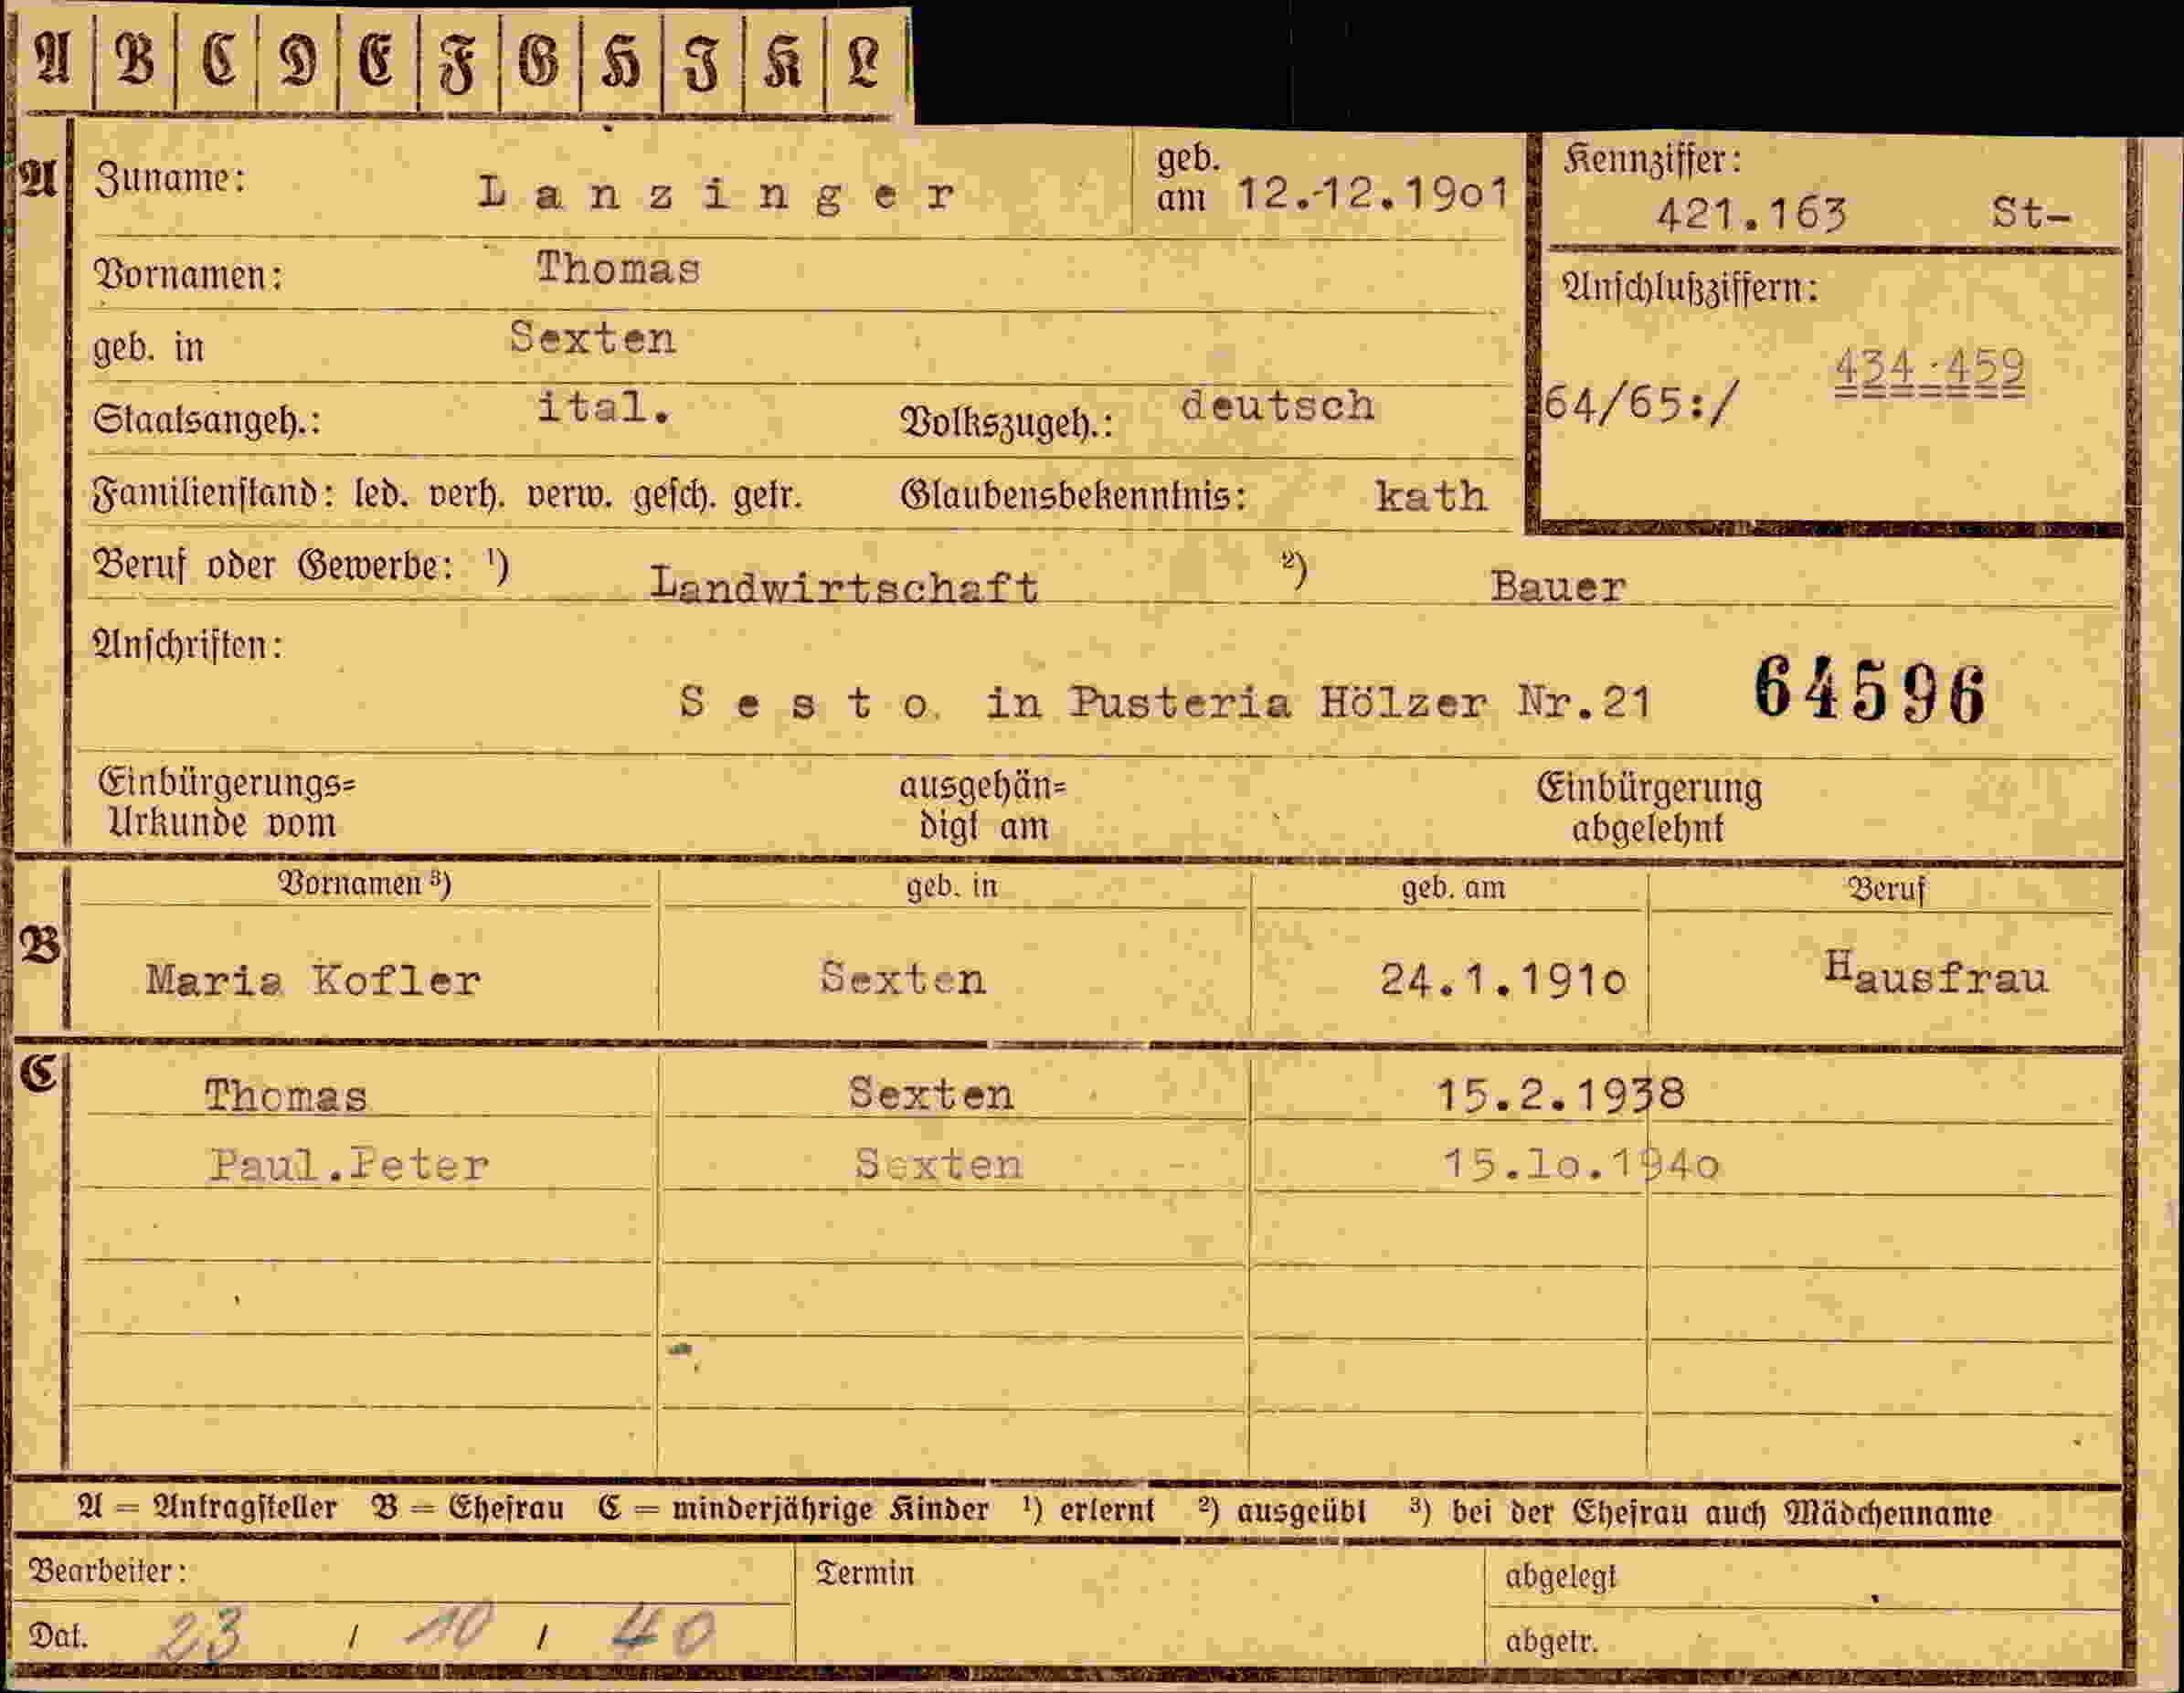 A B C D E F G H I K L
A Zuname: Lanzinger geb. am 12.12.1901 Kennziffer: 421.163 St-
Vornamen: Thomas
geb. in Sexten
Anschlußziffern:
64/65:/ 434.459
Staatsangeh.: ital. Volkszugeh.: deutsch
Familienstand: led. verh. verw. gesch. getr. Glaubensbekenntnis: kath
Beruf oder Gewerbe: ¹) Landwirtschaft ²) Bauer
Anschriften:
Sesto in Pusteria Hölzer Nr.21 64596
Einbürgerungs= ausgehän= Einbürgerung
Urkunde vom digt am abgelehnt
Vornamen ³) geb. in geb. am Beruf
B Maria Kofler Sexten 24.1.1910 Hausfrau
C Thomas Sexten 15.2.1938
Paul.Peter Sexten 15.10.1940
A = Antragsteller B = Ehefrau C = minderjährige Kinder ¹) erlernt ²) ausgeübt ³) bei der Ehefrau auch Mädchenname
Bearbeiter: Termin abgelegt
Dat. 23 / 10 / 40 abgetr.